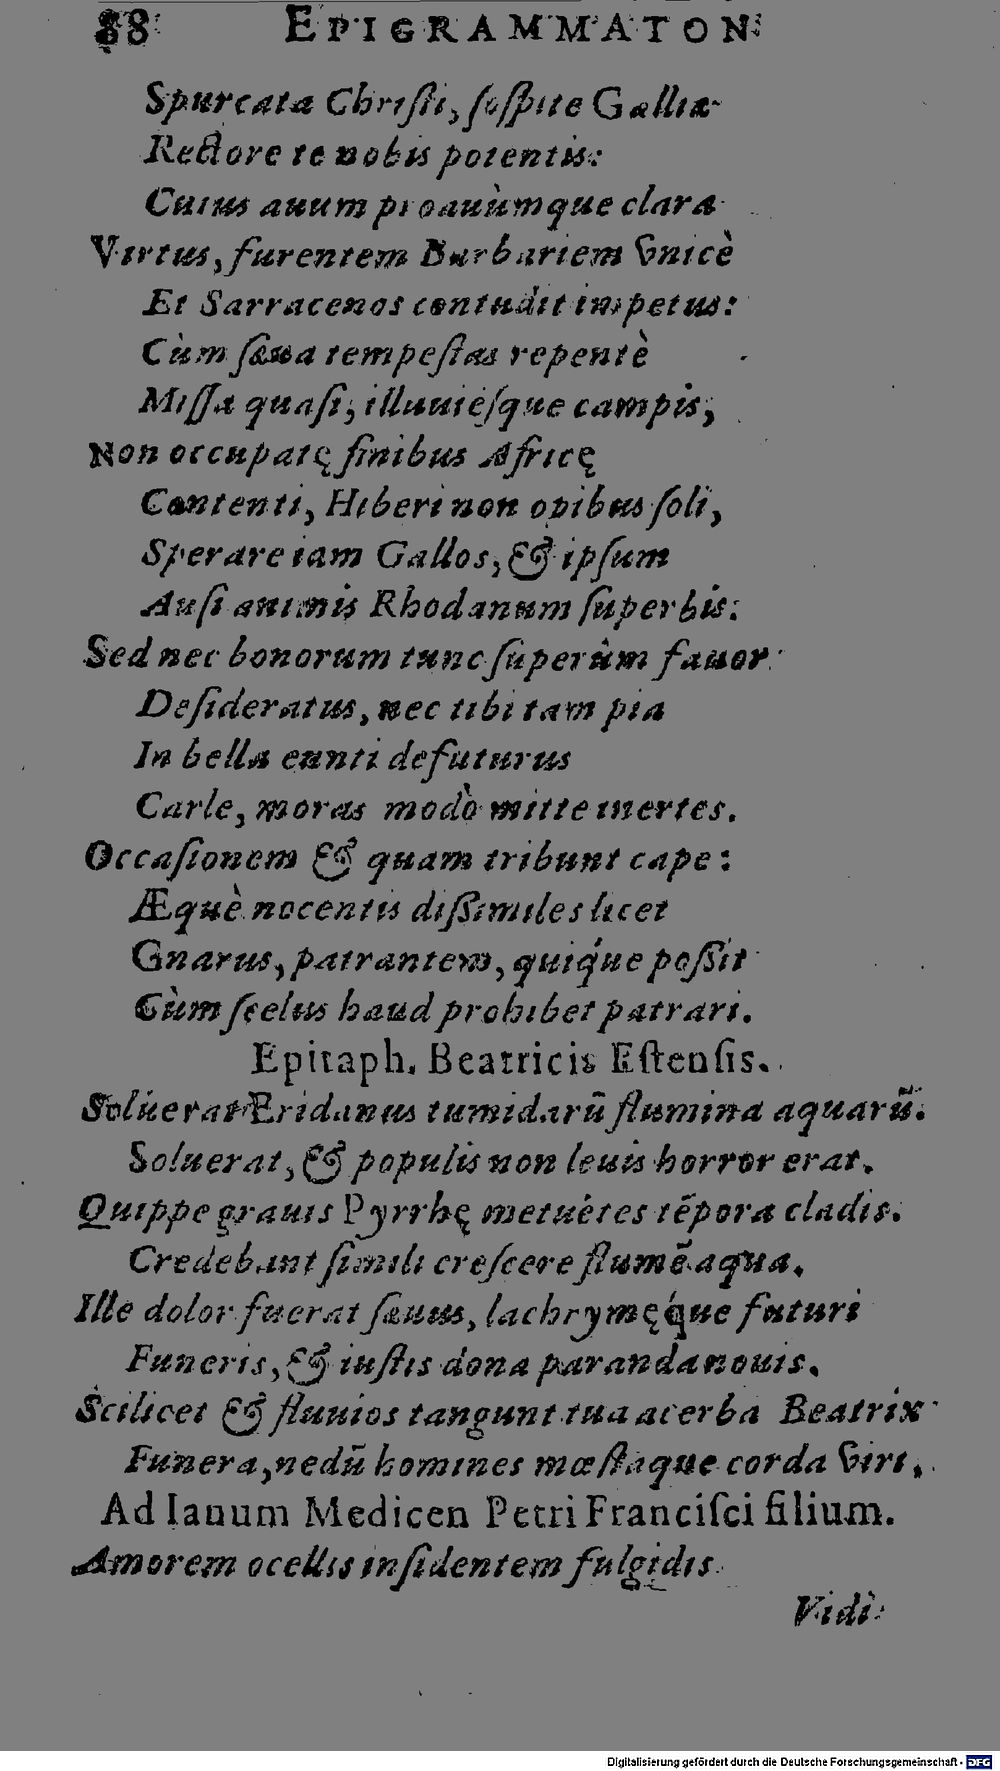 88 EPIGRAMMATON
Spurcata Christi, sospite Galliæ
Rectore te nobis potentis:
Cuius auum proauùmque clara
Virtus, furentem Barbariem vnicè
Et Sarracenos contudit impetus:
Cùm sæua tempestas repentè
Missa quasi, illuuiésque campis,
Non occupatę finibus Africę
Contenti, Hiberi non opibus soli,
Sperare iam Gallos, & ipsum
Ausi animis Rhodanum superbis:
Sed nec bonorum tunc superûm fauor
Desideratus, nec tibi tam pia
In bella eunti defuturus
Carle, moras modò mitte inertes.
Occasionem & quam tribunt cape:
Æquè nocentis dissimiles licet
Gnarus, patrantem, quíque possit
Cùm scelus haud prohibet patrari.
Epitaph. Beatricis Estensis.
Soluerat Eridanus tumidarū flumina aquarū.
Soluerat, & populis non leuis horror erat.
Quippe grauis Pyrrhę metuétes tēpora cladis.
Credebant simili crescere flumē aqua.
Ille dolor fuerat sæuus, lachrymęque futuri
Funeris, & iustis dona paranda nouis.
Scilicet & fluuios tangunt tua acerba Beatrix
Funera, nedū homines mœstaque corda viri.
Ad Ianum Medicen Petri Francisci filium.
Amorem ocellis insidentem fulgidis
Vidi
Digitalisierung gefördert durch die Deutsche Forschungsgemeinschaft - DFG